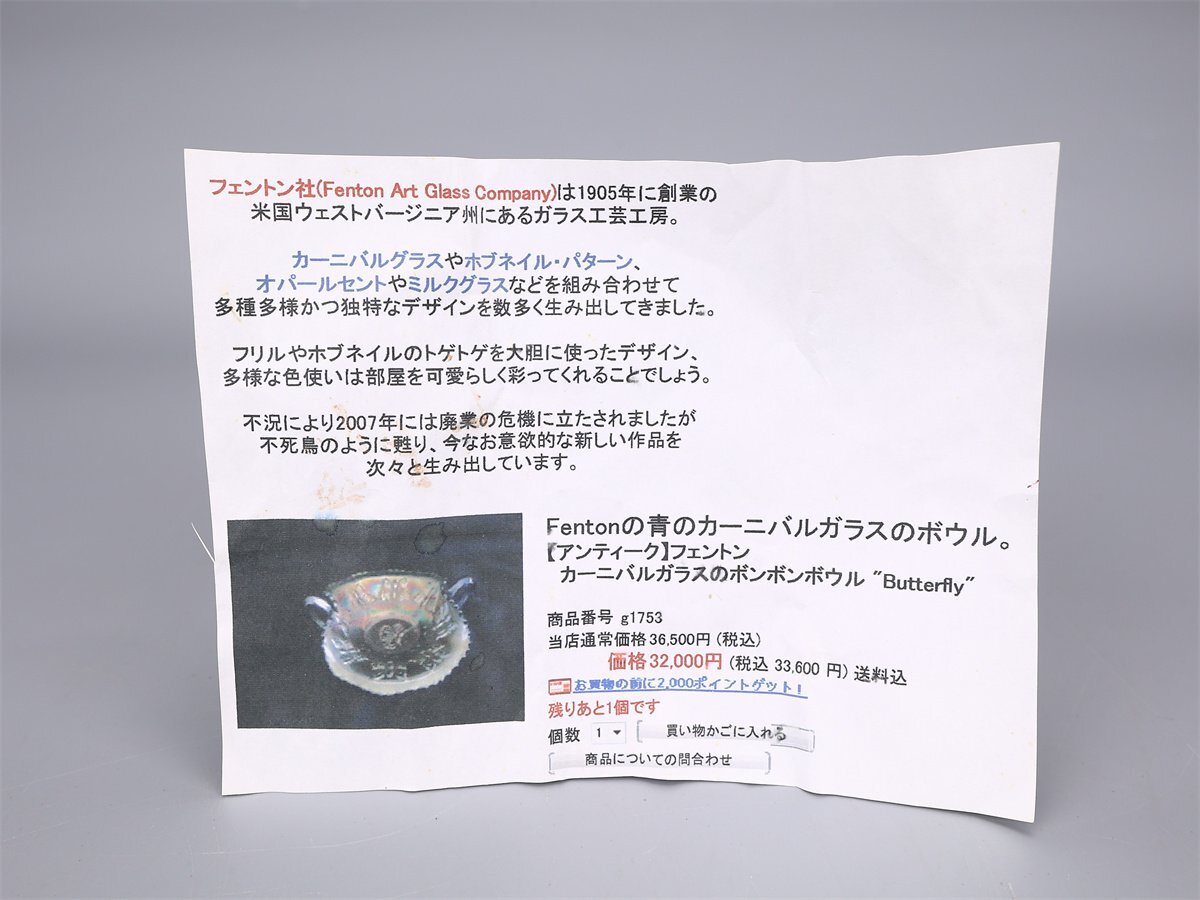 フェントン社(Fenton Art Glass Company)は1905年に創業の
米国ウェストバージニア州にあるガラス工芸工房。
カーニバルグラスやホブネイル・パターン、
オパールセントやミルクグラスなどを組み合わせて
多種多様かつ独特なデザインを数多く生み出してきました。
フリルやホブネイルのトゲトゲを大胆に使ったデザイン、
多様な色使いは部屋を可愛らしく彩ってくれることでしょう。
不況により2007年には廃業の危機に立たされましたが
不死鳥のように甦り、今なお意欲的な新しい作品を
次々と生み出しています。
Fentonの青のカーニバルガラスのボウル。
【アンティーク】フェントン
カーニバルガラスのボンボンボウル "Butterfly"
商品番号 g1753
当店通常価格36,500円 (税込)
価格32,000円 (税込 33,600 円) 送料込
お買物の前に2,000ポイントゲット!
残りあと1個です
個数 1 買い物かごに入れる
商品についての問合わせ